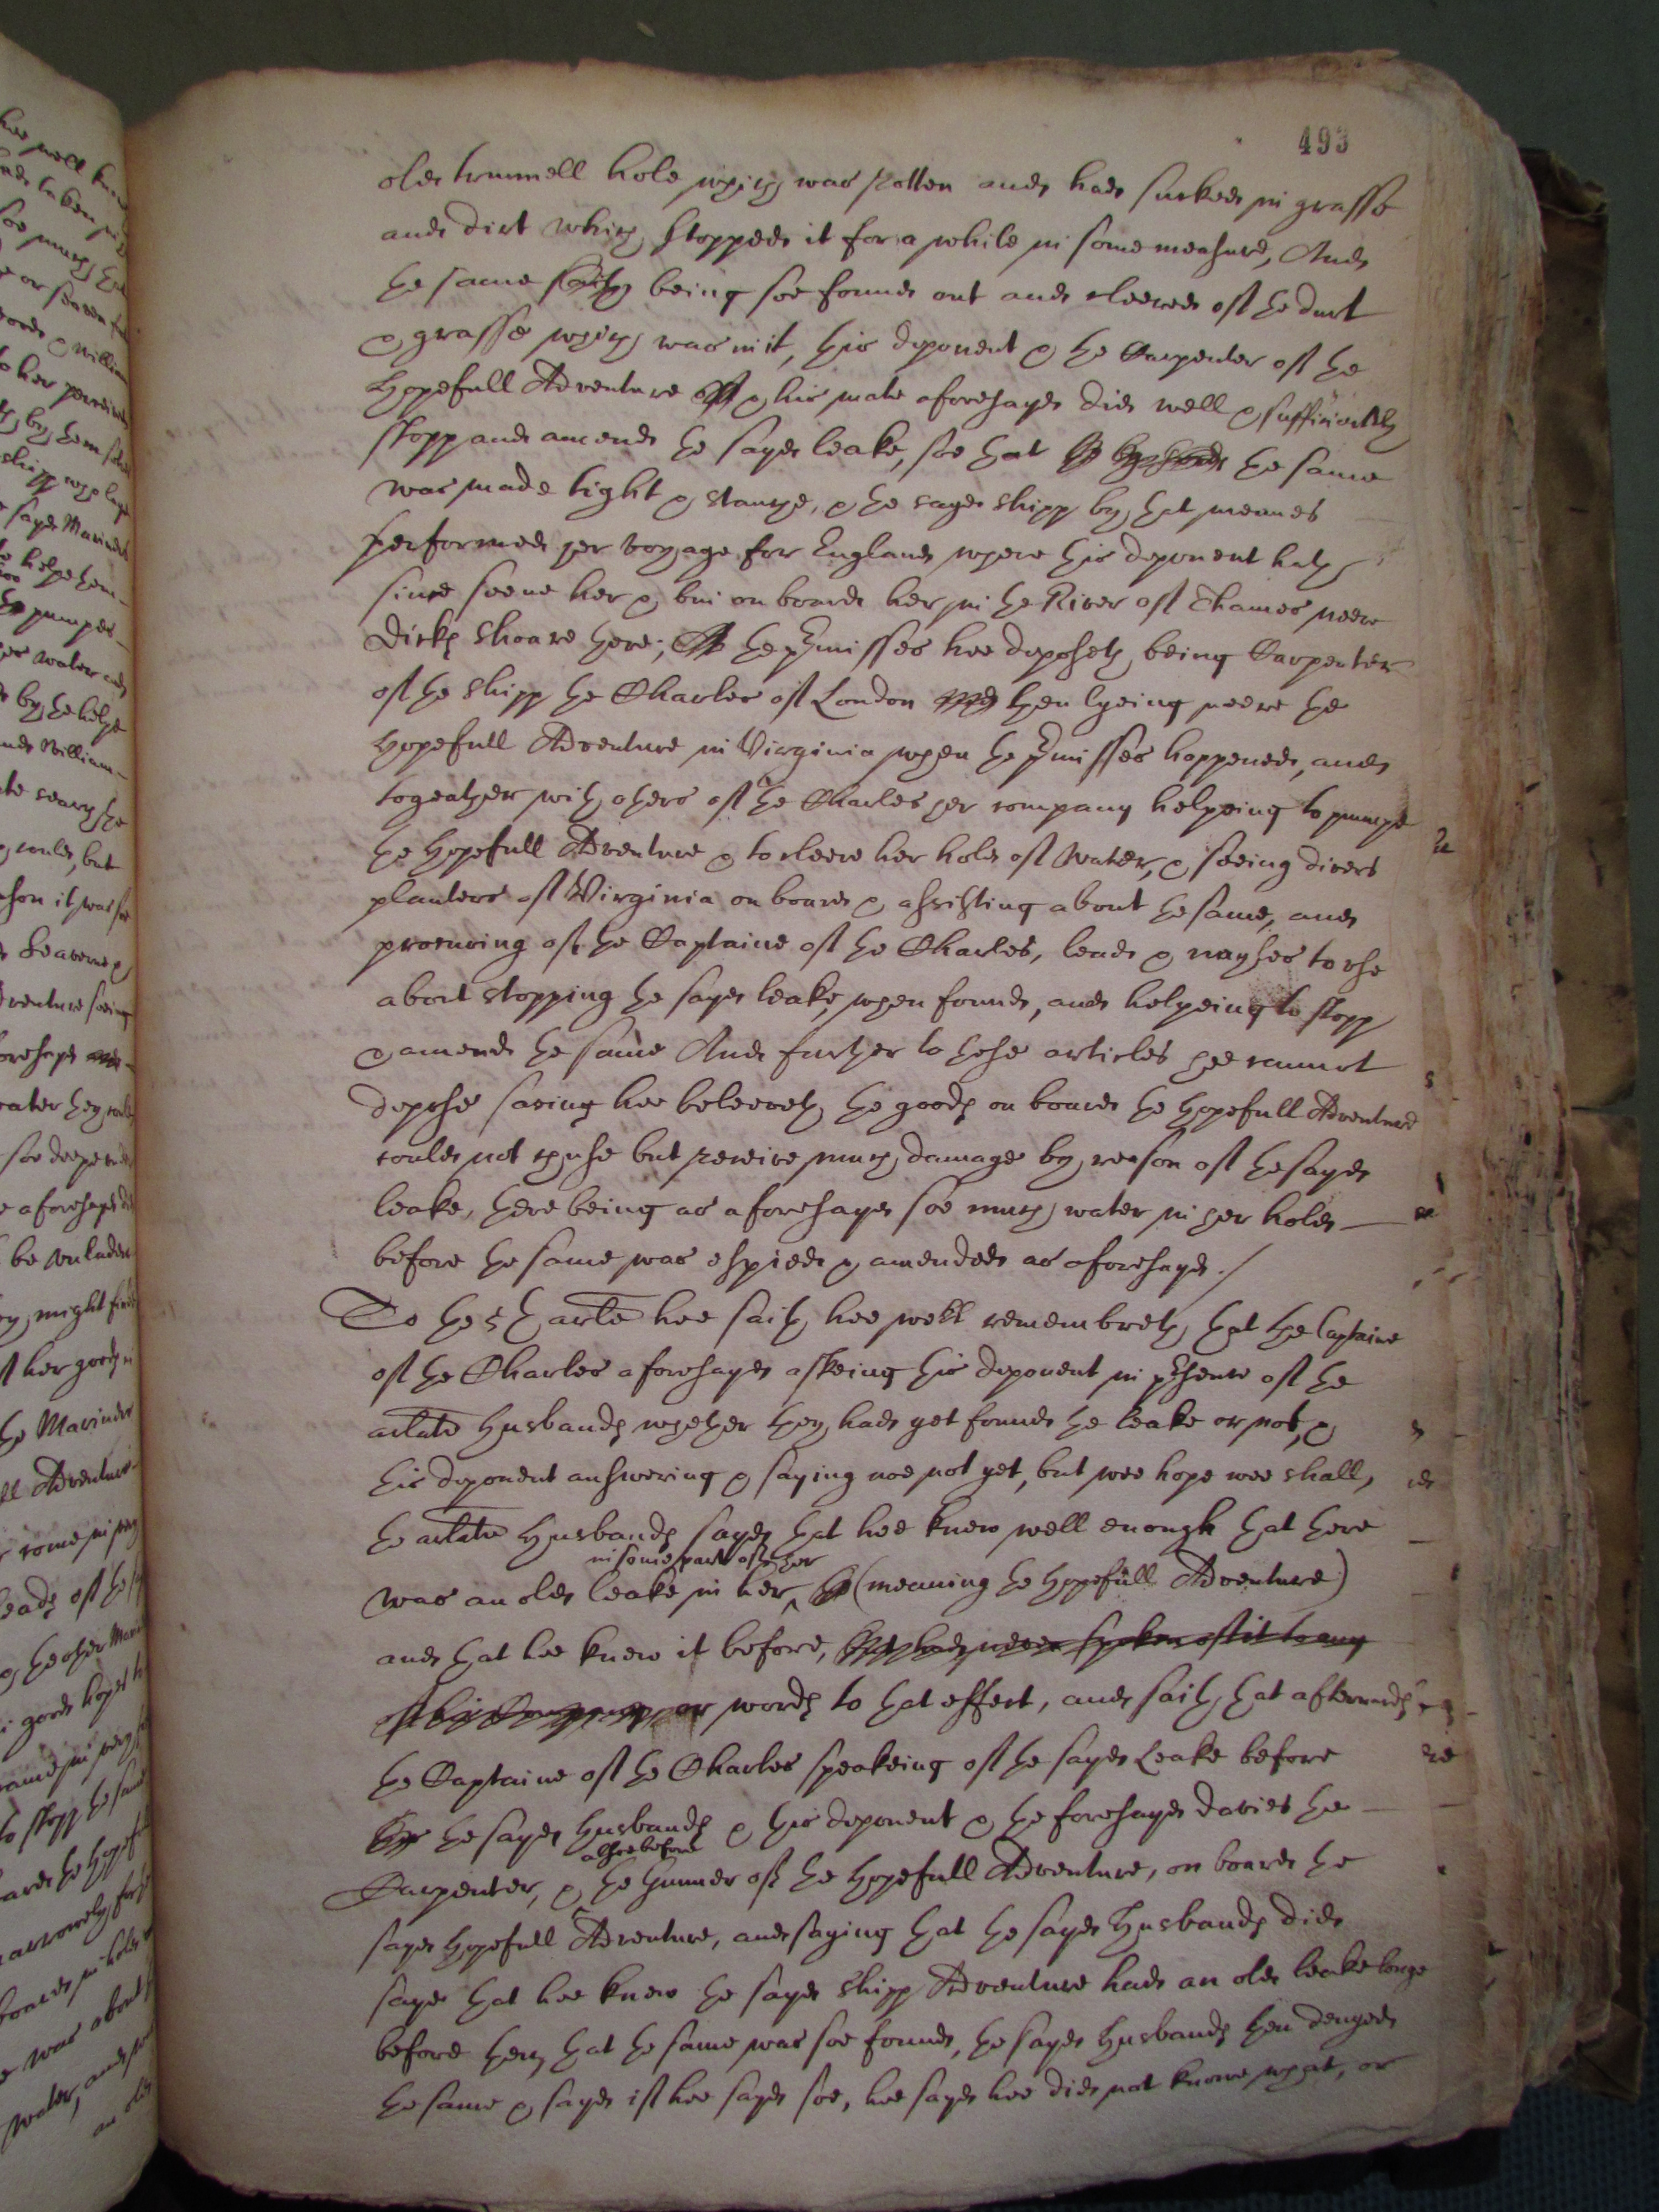 493
old trunnell hole which was rotten and had sucked in grasse
and dirt which stopped it for a while in some measure, And
the same being soe found out and cleered of the durt
& grasse which was in it, this deponent & the Carpenter of the
Hopefull Adventure & his mate aforesayd did well & sufficiently
stopp and amend the sayd leake, soe that the same
was made tight & stanche, & the sayd shipp by that meanes
performed her voyage for England where this deponent hath
since seene her & bin on board her in the River of Thames neere
Dicks shoare there; the premisses hee deposeth being Carpenter
of the shipp the Charles of London then lyeing neere the
Hopefull Adventure in Virginia when the premisses happened, and
togeather with others of the Charles her company helpeing to pumpe
the Hopefull Adventure & to cleere her hold of water, & seeing divers
planters of Virginia on board & assisting about the same, and
procuring of the Captaine of the Charles, lead & nayles to use
about stopping the sayd leake, when found, and helpeing to stopp
& amend the same And further to these articles hee cannot
depose saving hee beleeveth the goods on board the Hopefull Adventure
could not chuse but receive much damage by reason of the sayd
leake, there being as aforesayd soe much water in her hold
before the same was espied & amended as aforesayd./
To the 5th arle hee saith hee well remembreth that the Captaine
of the Charles aforesayd askeing this deponent in presence of the
arlate Husbands whether they had yet found the leake or not, &
this deponent answering & saying noe not yet, but wee hope wee shall,
the arlate Husbands sayd that hee knew well enough that there
in some part of her
was an old leake in her, (meaning the Hopefull Adventure)
and that hee knew it before, but had never spoken of it to any
of his Company or words to that effect, and saith that afterwards
the Captaine of the Charles speakeing of the sayd Leake before
the sayd Husbands & this deponent & the foresayd Davies the
alsoe before
Carpenter, & the Gunner of the Hopefull Adventure, on board the
sayd Hopefull Adventure, and saying that the sayd Husbands did
saye that hee knew the sayd shipp Adventure had an old leake longe
before then, that the same was soe found, the sayd Husbands then denyed
the same & sayd if hee sayd soe, hee sayd hee did not knowe what, or